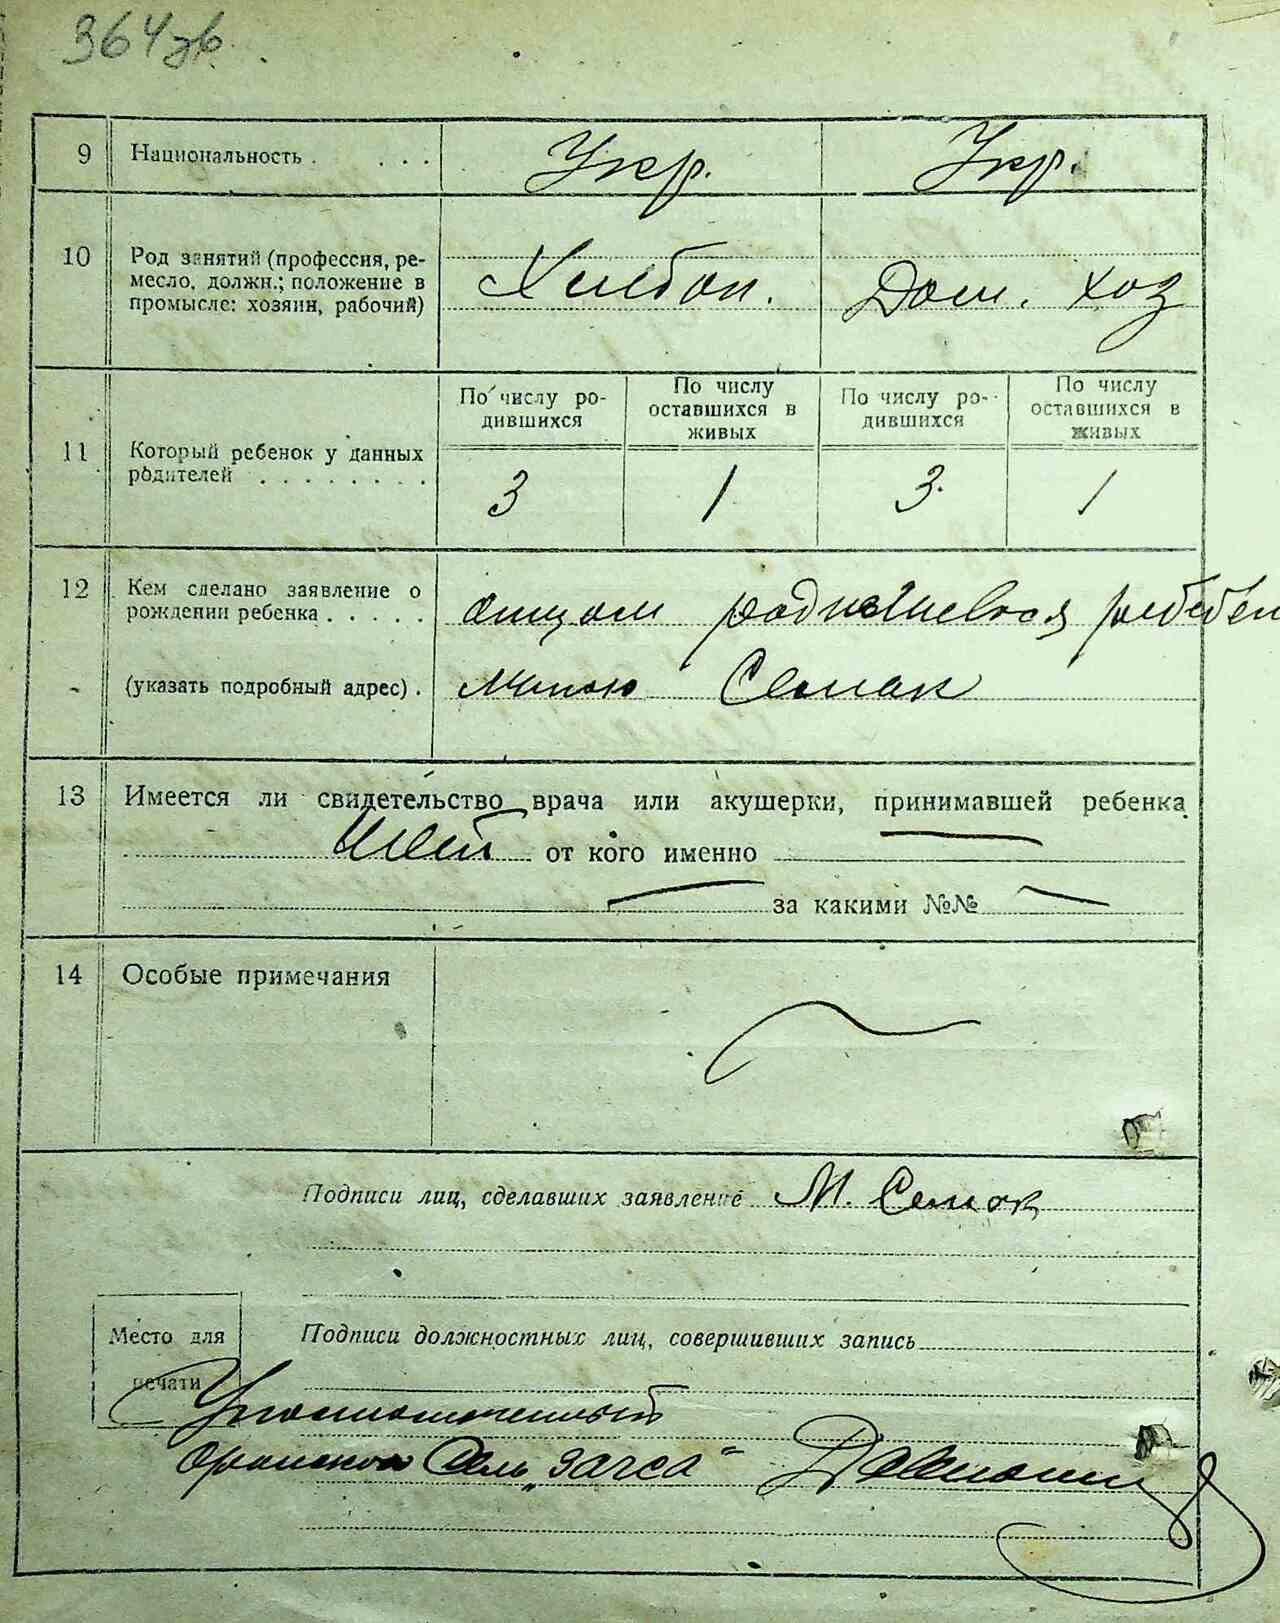 364 зв.
9 Национальность . . . . Укр. Укр.
10 Род занятий (профессия, ре-
месло, должн.; положение в
промысле: хозяин, рабочий)
Хлебоп. Дом. хоз
11 Который ребенок у данных
родителей . . . . . . . .
По числу ро-
дившихся
По числу
оставшихся в
живых
По числу ро-
дившихся
По числу
оставшихся в
живых
3 1 3. 1
12 Кем сделано заявление о
рождении ребенка . . . . .
отцом
(указать подробный адрес) .
Семак
13 Имеется ли свидетельство врача или акушерки, принимавшей ребенка
Нет от кого именно
за какими №№
14 Особые примечания
Подписи лиц, сделавших заявление М. Семак
Подписи должностных лиц, совершивших запись
Место для
печати
Уполномоченный
Сель „загса“